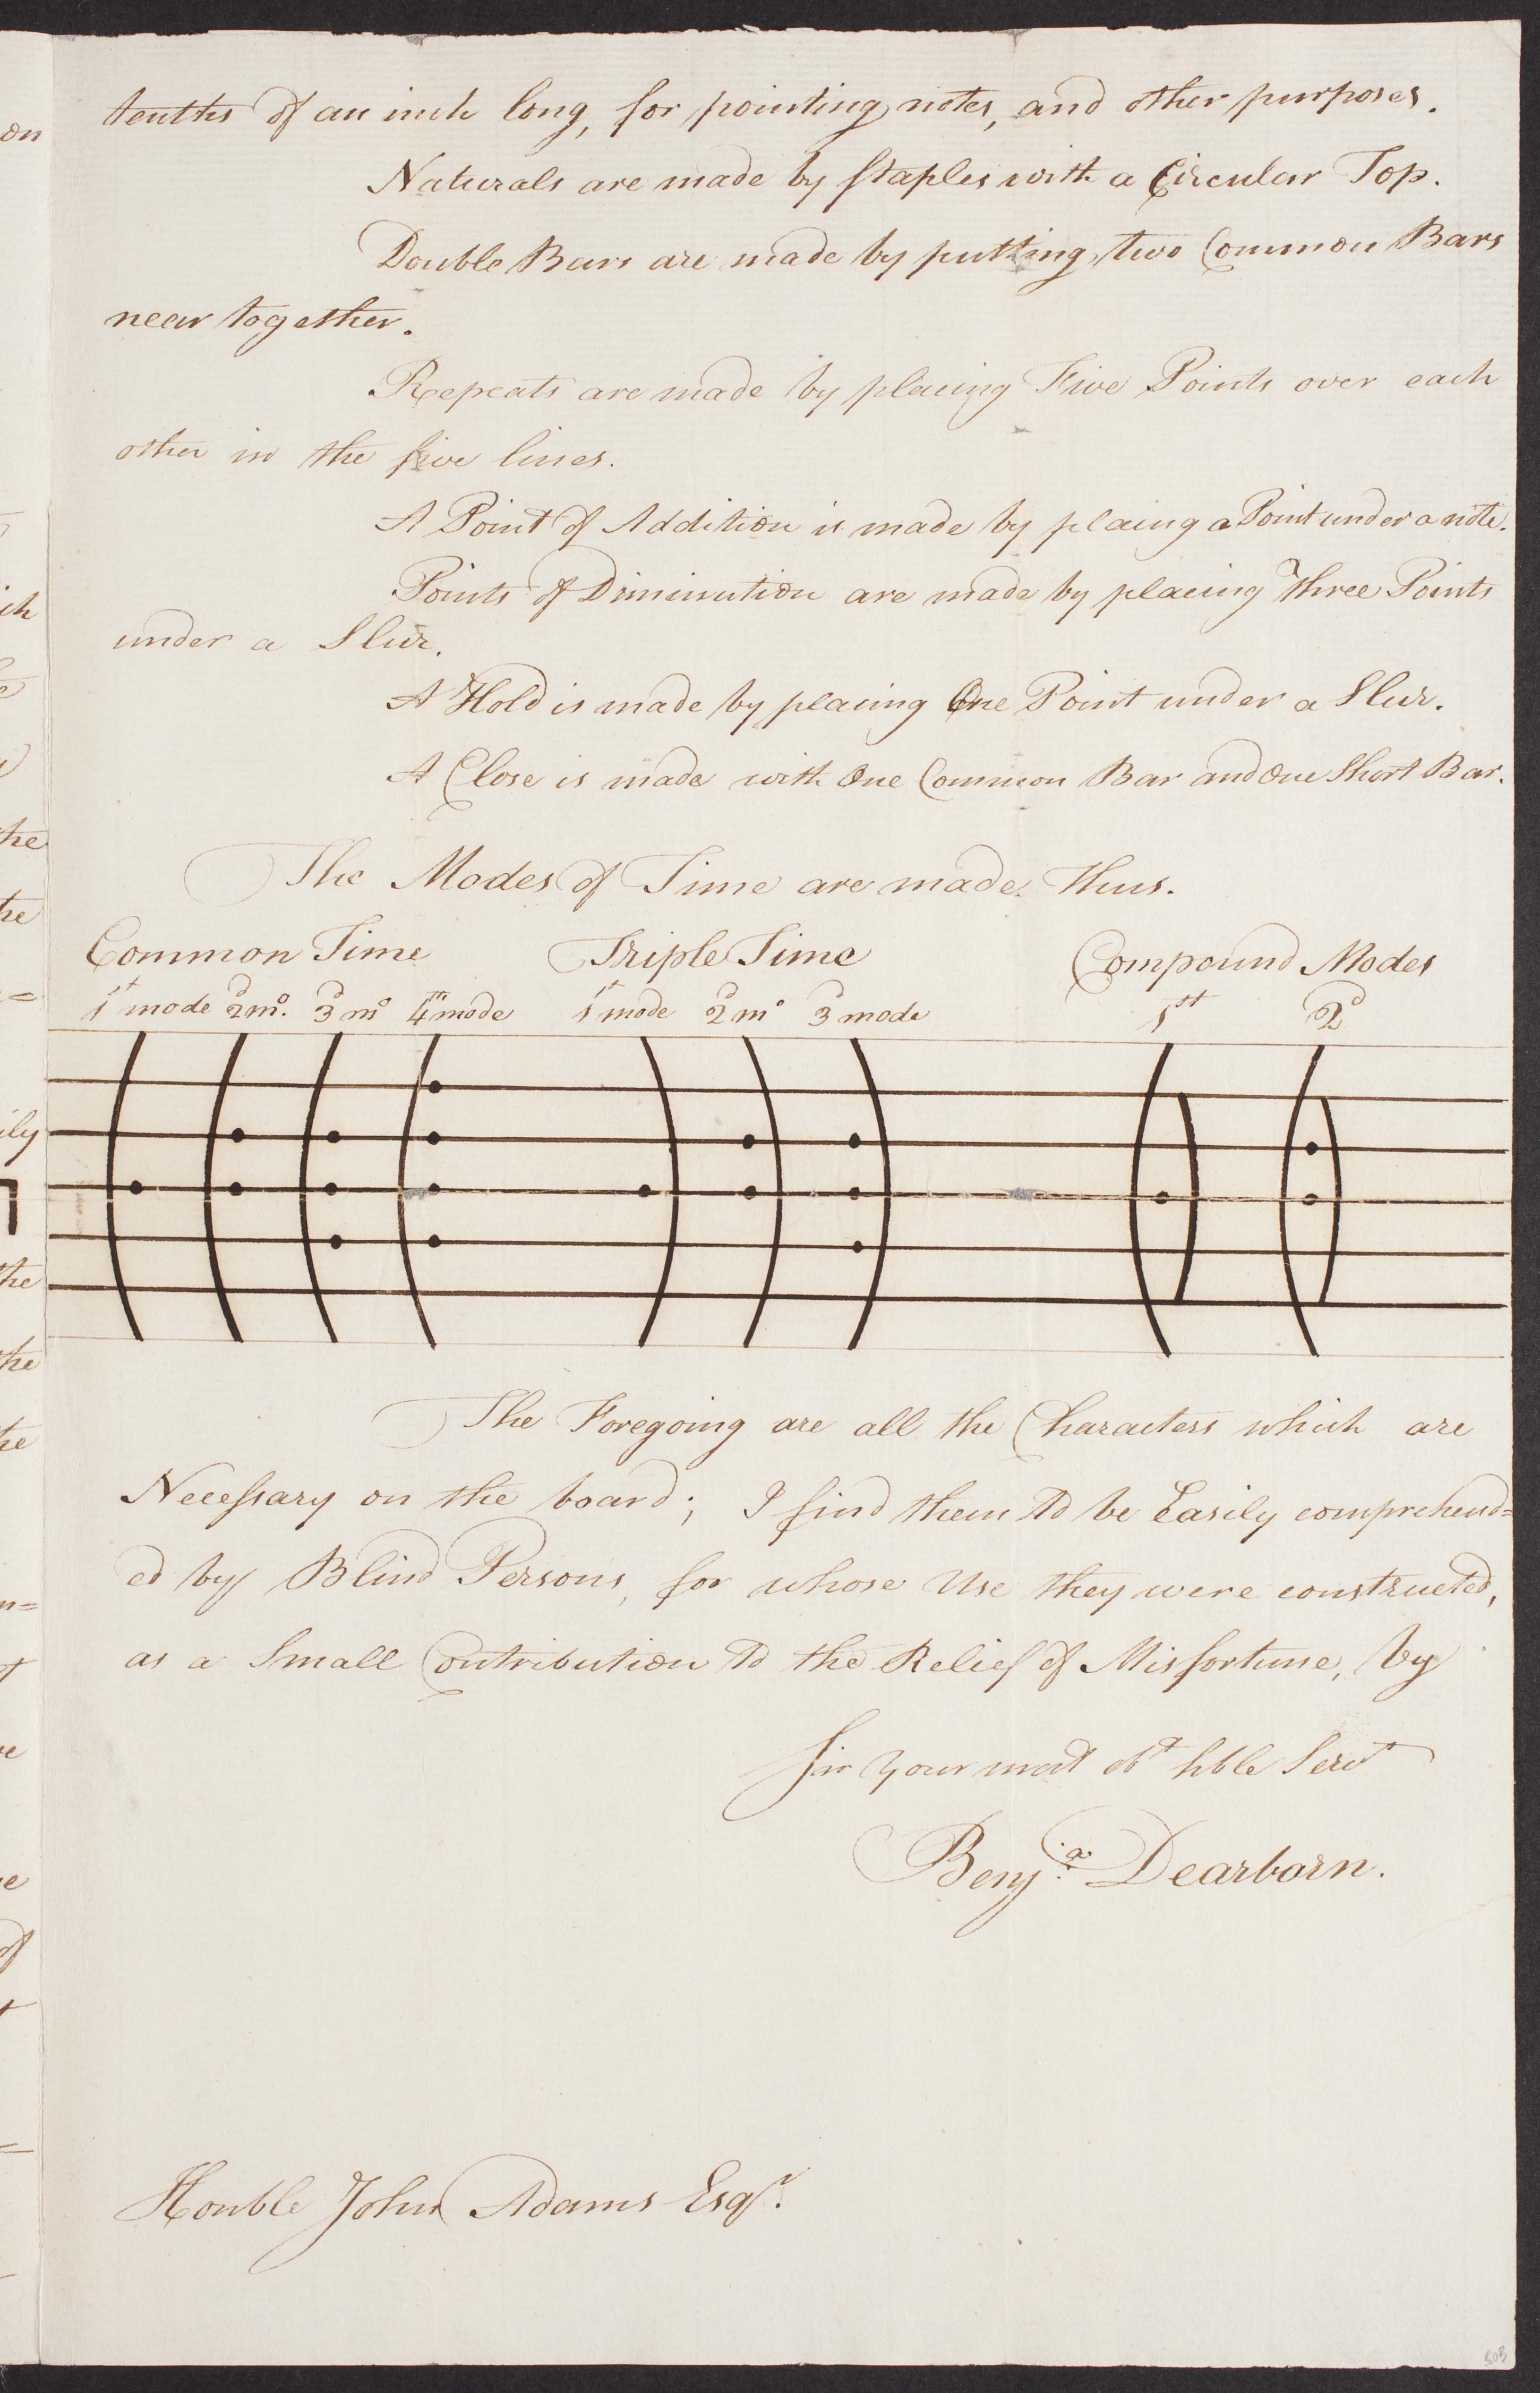 tenths of an inch long, for pointing notes, and other purposes.
Naturals are made by Staples with a Circular Top.
Double Bars are made by putting two Common Bars
near together.
Repeats are made by placing Five Points over each
other in the five lines.
A Point of Addition is made by placing a Point under a note.
Points of Diminution are made by placing Three Points
under a Slur.
A Hold is made by placing One Point under a Slur.
A Close is made with One Common Bar and One Short Bar.
The Modes of Time are made Thus.
Common Time Triple Time Compound Modes
1st mode 2d mo. 3d mo 4th mode 1st mode 2d mo 3d mode 1st 2d
The Foregoing are all the Characters which are
Necessary on the board; I find them to be Easily comprehend=
ed by Blind Persons, for whose Use they were constructed,
as a Small Contribution to the Relief of Misfortune, by
Sir Your most obt hble Servt
Benja. Dearborn.
Honble John Adams Esqr.